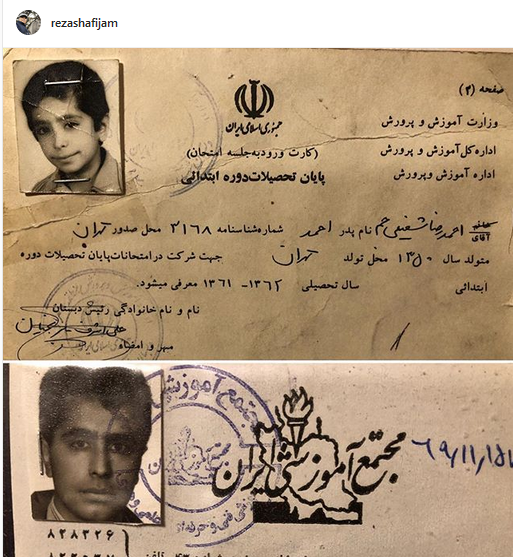 rezashafijam
صفحه (۲)
جمهوری اسلامی ایران
وزارت آموزش و پرورش
(کارت ورود به جلسه امتحان)
اداره کل آموزش و پرورش
پایان تحصیلات دوره ابتدائی
اداره آموزش و پرورش
خانم
آقای احمدرضا شفیعی جم نام پدر احمد شماره شناسنامه ۲۱۶۸ محل صدور تهران
متولد سال ۱۳۵۰ محل تولد تهران جهت شرکت در امتحانات پایان تحصیلات دوره
ابتدائی سال تحصیلی ۱۳۶۲-۱۳۶۱ معرفی میشود.
نام و نام خانوادگی رئیس دبستان
مهر و امضاء
مجتمع آموزشی ایران
۶۹/۱۱/۱۵
۸۲۸۳۲۶